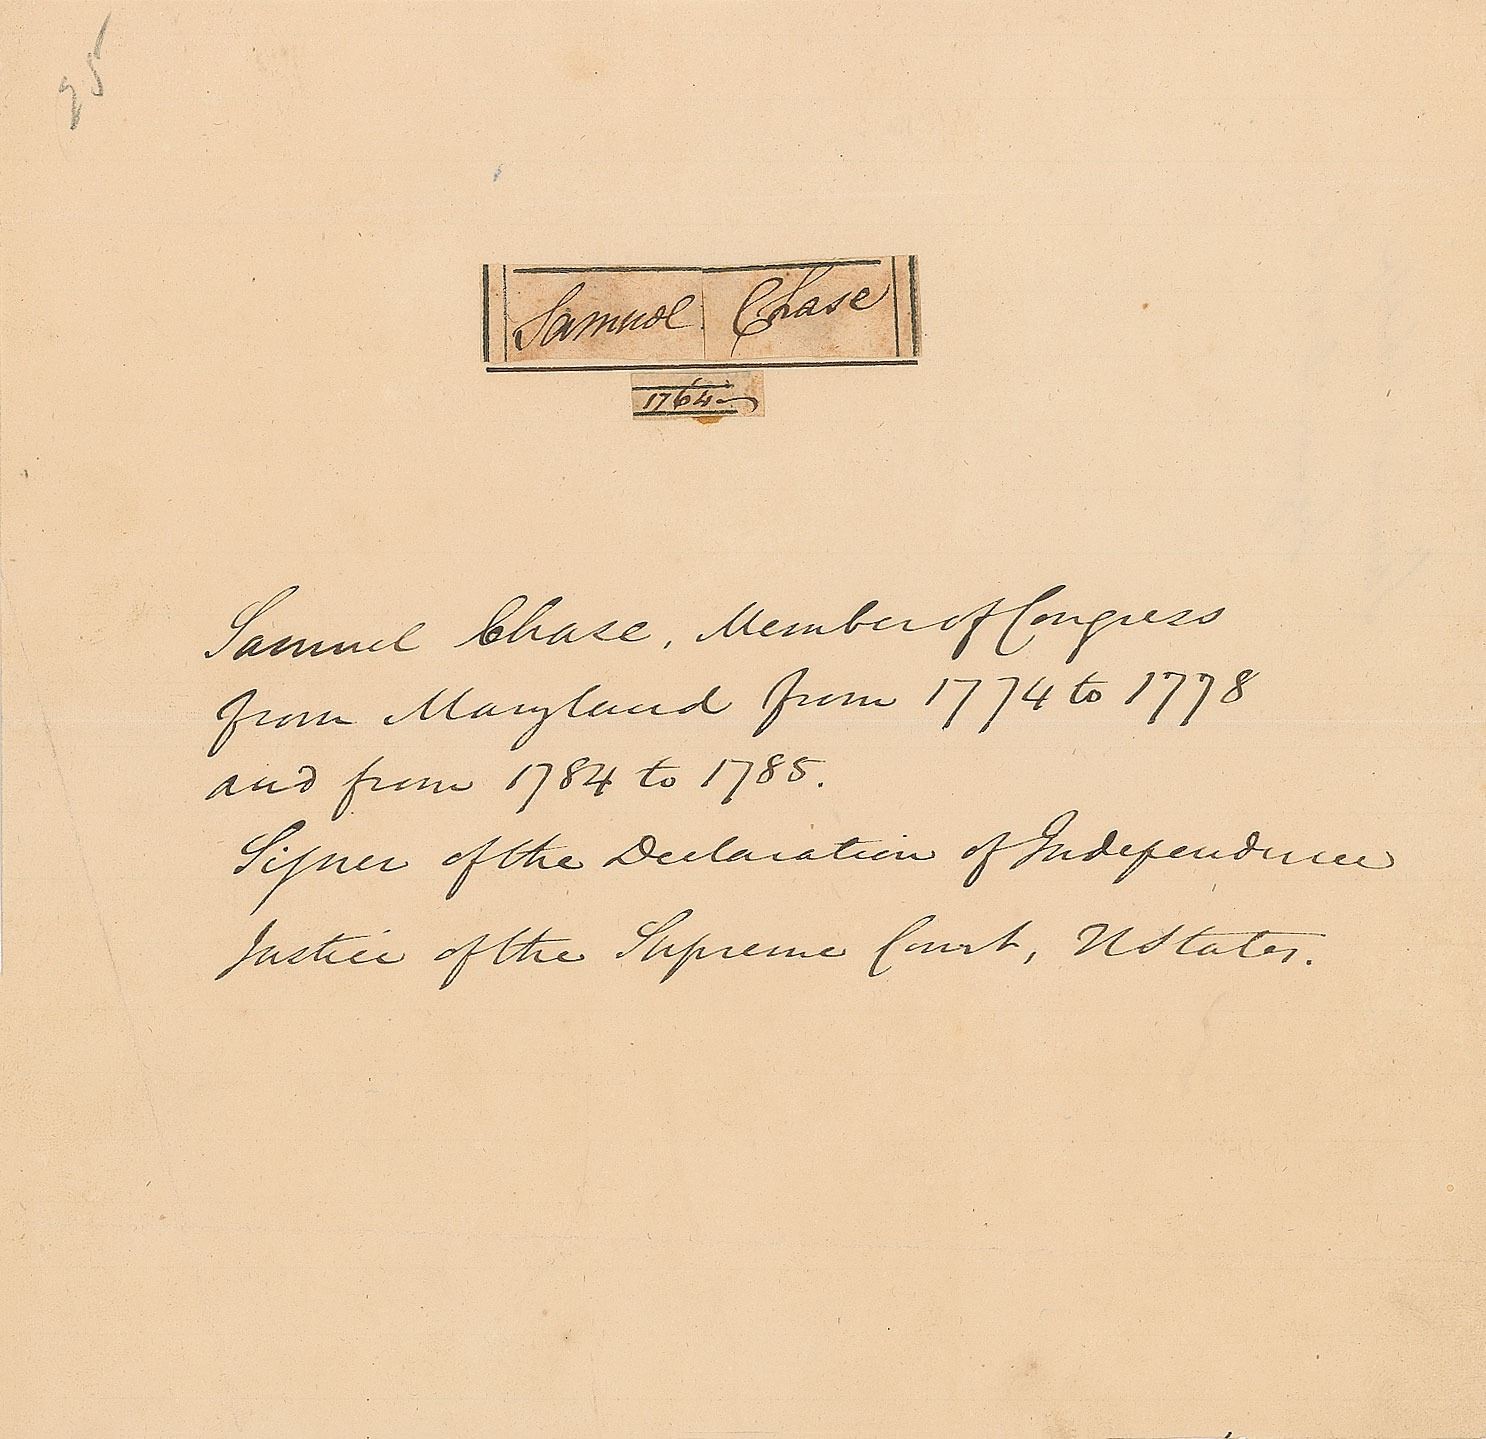 Samuel Chase
1764
Samuel Chase, Member of Congress
from Maryland from 1774 to 1778
and from 1784 to 1785.
Signer of the Declaration of Independence
Justice of the Supreme Court, U States.